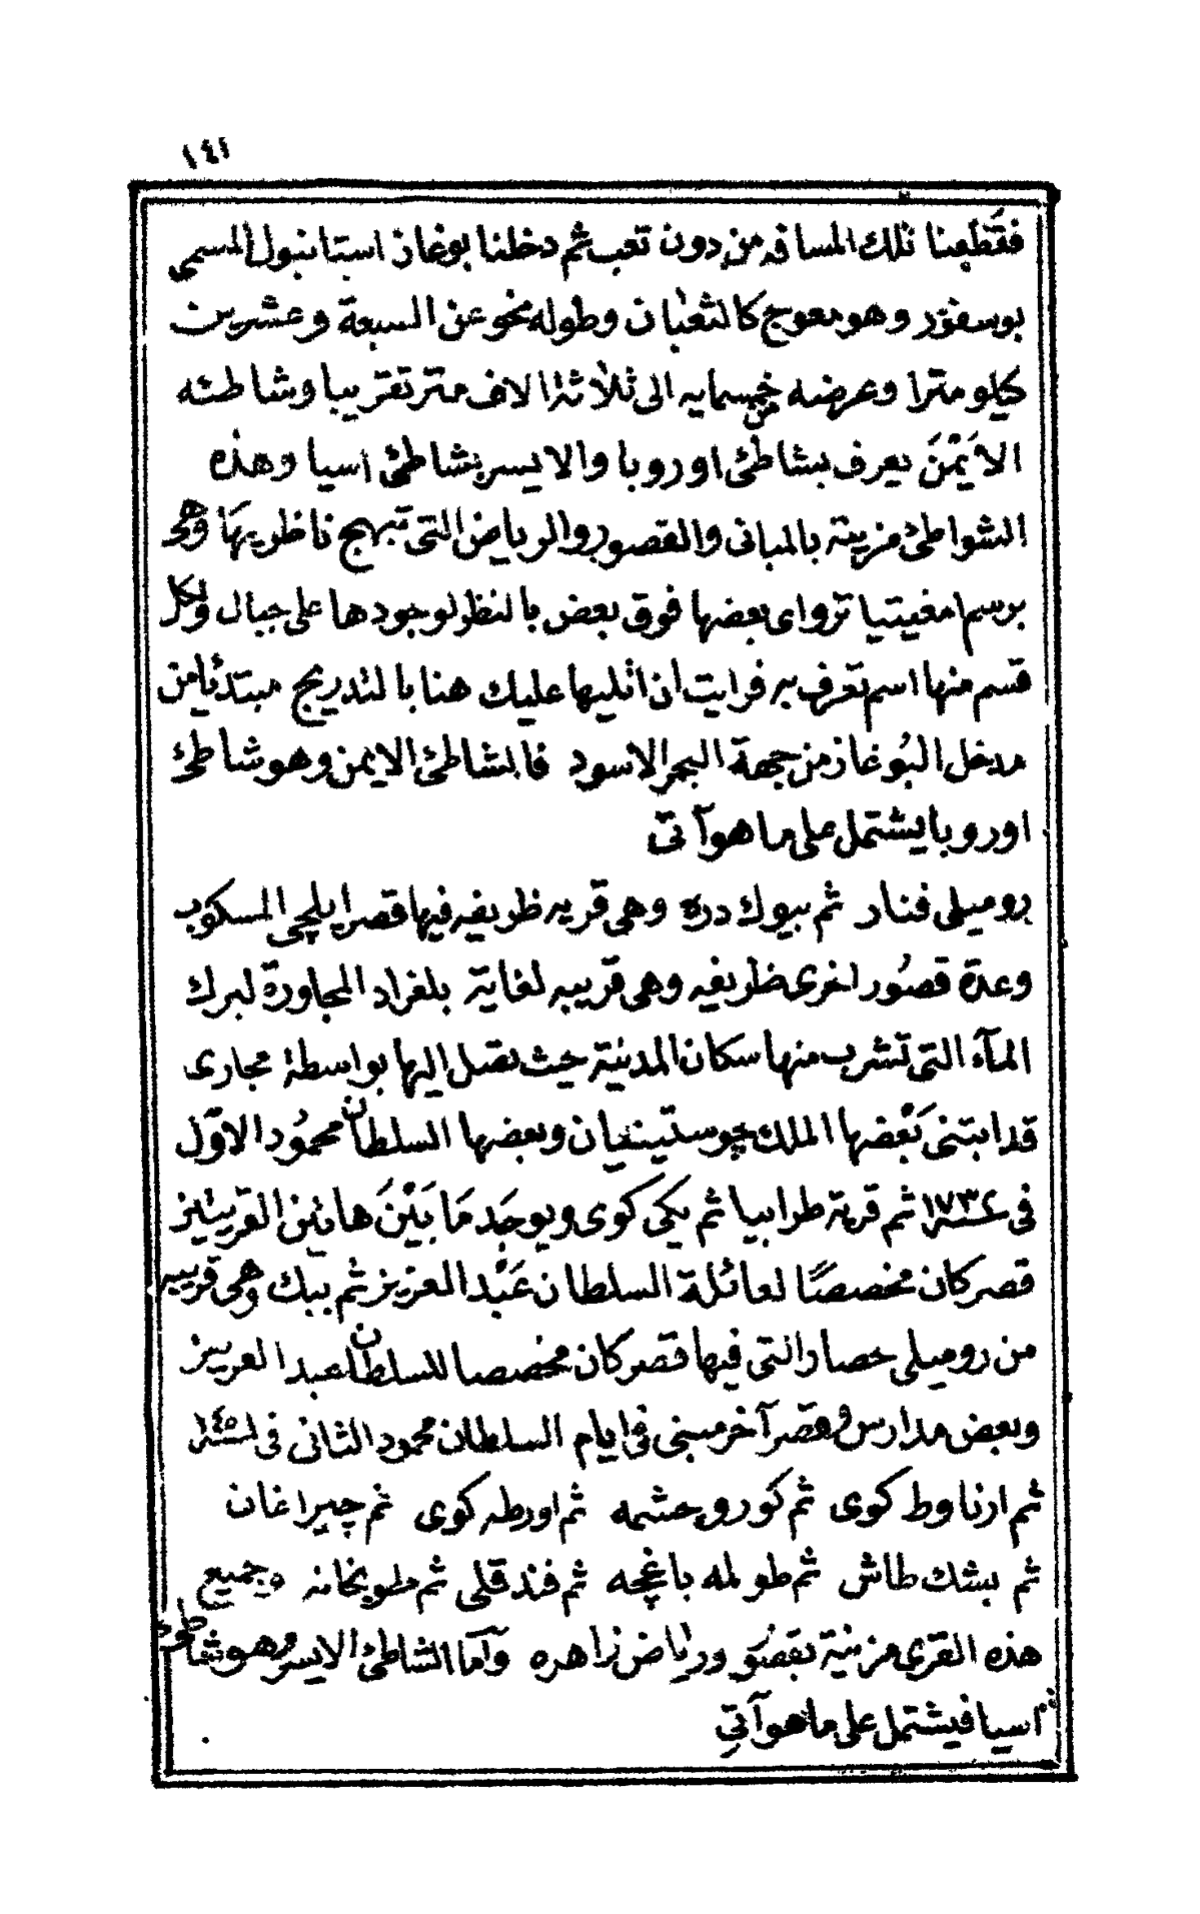 ١٤١
فقَطعنا تلك المسافه من دون تعب ثم دخلنا بوغاز استانبول المسمى
بوسفور وهو معوج كالثعبان وطوله نحو عن السبعة وعشرين
كيلو مترا وعرضه من خمسمايه الى ثلاثة الاف متر تقريبا وشاطئه
الاَيمْنَ يعرف بشاطئ اوروبا والايسر بشاطئ اسيا وهذه
الشواطئ مزينة بالمبانى والقصور والرياض التى تبهج ناظريهَا وهى
برسم امفيتيا تزواى بعضها فوق بعض بالنظر لوجودها على جبال ولكل
قسم منها اسم تعرف به فرايت ان اتليها عليك هنا بالتدريج مبتدئا من
مدخل البُوغاز من جهة البحر الاسود فالشاطئ الايمن وهو شاطئ
اوروبا يشتمل على ما هو آتى
روميلى فنار ثم بيوك دره وهى قريه ظريفه فيها قصر ايلچى المسكوب
وعدة قصُور اخرى ظريفه وهى قريبه لغاية بلغراد المجاورة لبرك
المآء التى تشرب منها سكان المدينة حيث تصل اليها بواسطة مجارى
قد ابتنى بَعْضها الملك چوستينيان وبعضها السلطان محمُود الاوّل
فى سنة ١٧٣٢ ثم قرية طرابيا ثم يكى كوى ويوجَد مَا بَيْنَ هاتين القريتين
قصر كان مخصصًا لعائلة السلطان عَبْد العزيز ثم ببك وهى قريبه
من روميلى حصار التى فيها قصر كان مخصصا للسلطان عبد العزيز
وبعض مدارس وقصر آخر مبنى فى ايام السلطان محمود الثانى فى سنة
ثم ارناوط كوى ثم كوروچشمه ثم اورطه كوى ثم چيراغان
ثم بشك طاش ثم طولمه باغچه ثم فندقلى ثم طوبخانه وجميع
هذه القرى مزينة بقصُور ورياض زاهره وَآما الشاطئ الايسر وهو شاطئ
اسيا فيشتمل على ما هو آتِى